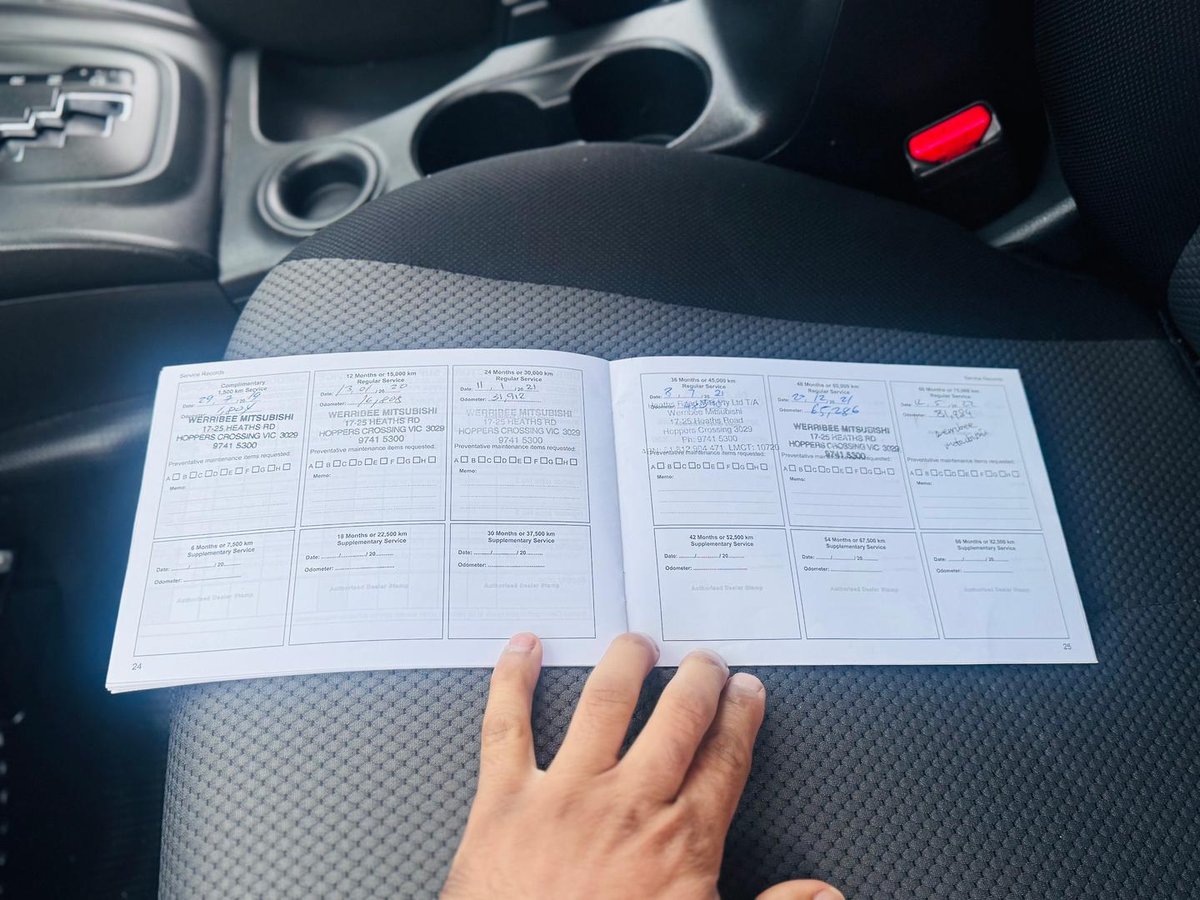 Service Records
Complimentary
1,500 km Service
Date: 29 / 7 / 2019
Odometer: 1804
WERRIBEE MITSUBISHI
17-25 HEATHS RD
HOPPERS CROSSING VIC 3029
9741 5300
Preventative maintenance items requested:
A B C D E F G H
Memo:
12 Months or 15,000 km
Regular Service
Date: 13 / 01 / 2020
Odometer:
WERRIBEE MITSUBISHI
17-25 HEATHS RD
HOPPERS CROSSING VIC 3029
9741 5300
Preventative maintenance items requested:
A B C D E F G H
Memo:
24 Months or 30,000 km
Regular Service
Date: 11 / 1 / 2021
Odometer: 31,912
WERRIBEE MITSUBISHI
17-25 HEATHS RD
HOPPERS CROSSING VIC 3029
9741 5300
Preventative maintenance items requested:
A B C D E F G H
Memo:
6 Months or 7,500 km
Supplementary Service
Date: / / 20
Odometer:
Authorised Dealer Stamp
18 Months or 22,500 km
Supplementary Service
Date: / / 20
Odometer:
30 Months or 37,500 km
Supplementary Service
Date: / / 20
Odometer:
Authorised Dealer Stamp
24
Service Records
36 Months or 45,000 km
Regular Service
Date: 8 / 9 / 2021
Odometer:
Heaths Road Pty Ltd T/A
Werribee Mitsubishi
17-25 Heaths Road
Hoppers Crossing 3029
Ph: 9741 5300
904 471 LMCT: 10720
A B C D E F G H
Memo:
48 Months or 60,000 km
Regular Service
Date: 29 / 12 / 2021
Odometer: 65,286
WERRIBEE MITSUBISHI
17-25 HEATHS RD
HOPPERS CROSSING VIC 3029
9741 5300
Preventative maintenance items requested:
A B C D E F G H
Memo:
60 Months or 75,000 km
Regular Service
Date: / 5 / 2022
Odometer: 81,984
Werribee
Mitsubishi
Preventative maintenance items requested:
A B C D E F G H
Memo:
42 Months or 52,500 km
Supplementary Service
Date: / / 20
Odometer:
Authorised Dealer Stamp
54 Months or 67,500 km
Supplementary Service
Date: / / 20
Odometer:
Authorised Dealer Stamp
66 Months or 82,500 km
Supplementary Service
Date: / / 20
Odometer:
Authorised Dealer Stamp
25